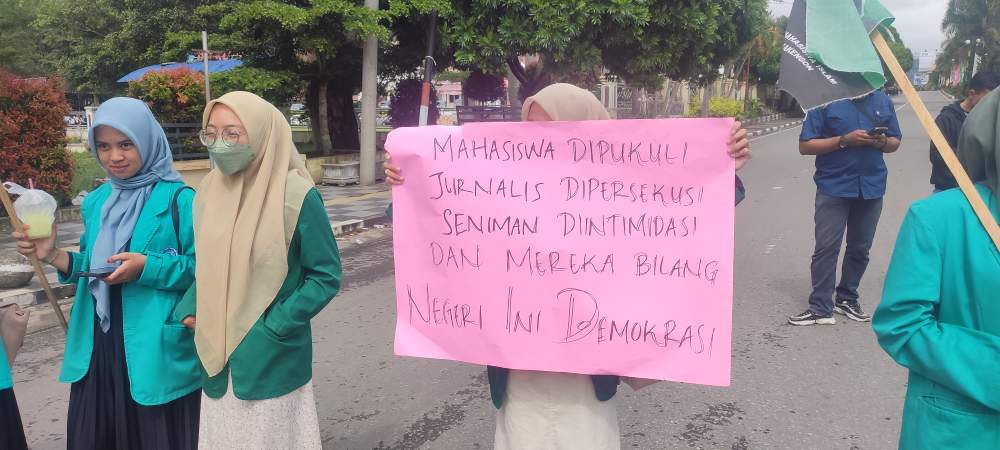 MAHASISWA DIPUKULI
JURNALIS DIPERSEKUSI
SENIMAN DIINTIMIDASI
DAN MEREKA BILANG
NEGERI INI DEMOKRASI